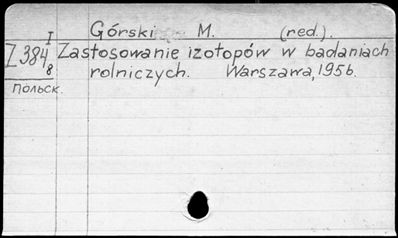 Górski M. (red.).
I 384 I 8 Zastosowanie izotopów w badaniach
rolniczych. Warszawa, 1956.
польск.